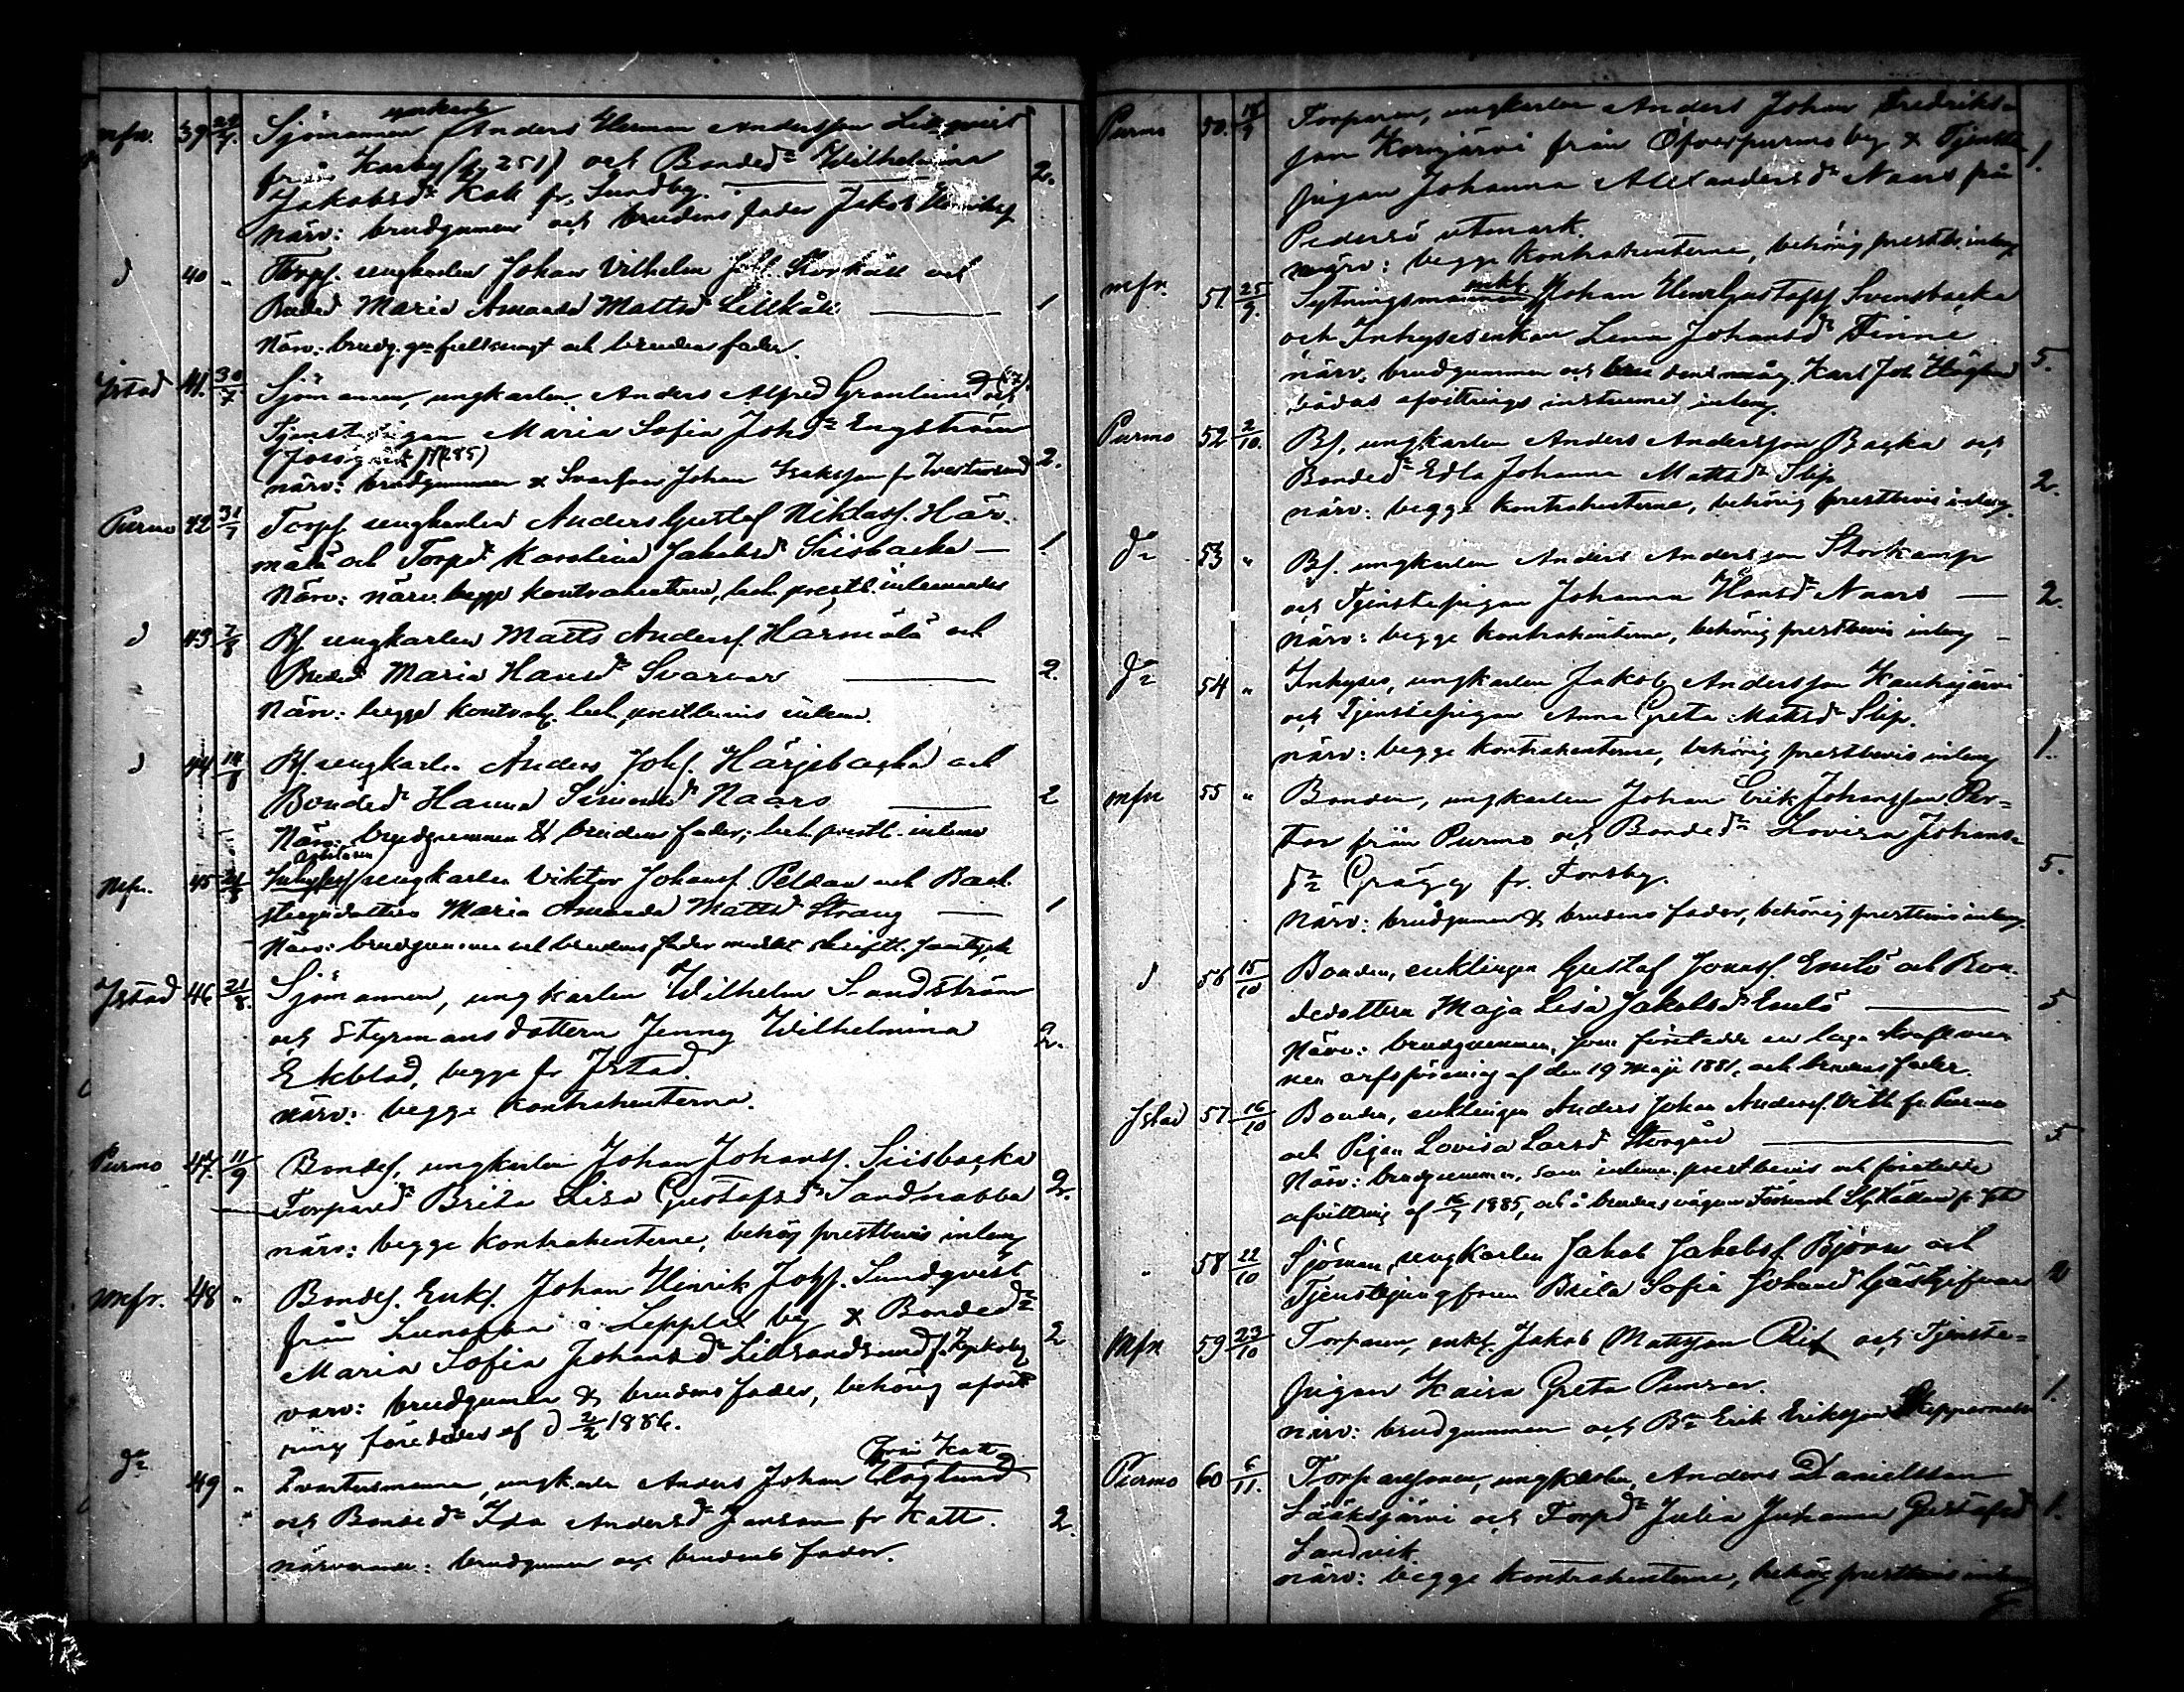 mfn. 39 22/7. Sjömannen ungkarln Anders Herman Andersson Lindqvist
från Karby (251) och Bonded:r Wilhelmina 2.
Jakobsd:r Katt fr. Sundby.
närv: brudgumen och brudens fader Jakob
d 40 " Torps. ungkarlen Johan Vilhelm Johs. Storkåll och
Bonded Maria Amanda Mattsd Lillkåll 1
Närv: brudg. gm fullmagt och brudens fader.
Jstad 41. 30/7 Sjömannen, ungkarlen, Anders Alfred Granlund och
Tjenstepigan Maria Sofia Johsd:r Engström
(285) 2.
närv: brudgummen & Svarfvar Johan Isaksson fr Westersund
Purmo 42 31/7 Torps. ungkarlen Anders Gustaf Niklass. Här-
mälä och Torpd:r Karolina Jakobsd Siisbacka — 1.
Närv: närv. begge kontrahenterna, beh prestb. inlemnades
d 43 7/8 Bs. ungkarlen Matts Anderss. Härmälä och
Bonded Maria Hansd:r Svarvar 2.
Närv: begge kontrah. beh. prestbevis inlemn.
d 44 14/8 Bs. ungkarlen Anders Johs. Härjsbacka och
Bonded:r Hanna Simonsd:r Naars 2
Närv: brudgummen & brudens fader; beh. prestb. inlemn
Mfn. 45 21/8 Arbetaren ungkarlen Viktor Johans. Peldan och Back-
stugudottern Maria Amanda Mattsd Strang — 1
Närv: brudgummen och brudens fader skriftl. samtycke
Jstad 46 21/8. Sjömannen, ungkarlen Wilhelm Sandström
och Styrmansdottern Jenny Wilhelmina 2.
Ekblad, begge fr Jstad.
närv: begge kontrahenterna.
Purmo 47. 11/9 Bondes. ungkarlen Johan Johanss. Siisbacka
Torpared:r Brita Lisa Gustafsd:r Sandnabba 2.
närv: begge kontrahenterna, behög prestbevis inlemn
mfr. 48 " Bondes. Enkl. Johan Hinrik Johss. Sundqvist
från i Lepplax by & Bonded:r
Maria Sofia Johansd:r Lillsandsund f. Kyrkoby 2
varv: brudgumen & brudens fader, behörig afvitt-
ring företedes af d 2/2 1886.
d:o 49 " Qvartersmannen, ungkarln Anders Johan Höglund från Katt
och Bonded:r Ida Andersd:r Janson fr Katt. 2
närvarande: brudgumen och brudens fader.
Purmo 50. 18/9 Torparen, ungkarlen Anders Johan Fredriks-
son Kornjärvi från Öfverpurmo by & Tjenste- 1.
pigan Johanna Alexandersd:r Naars från
Pedersö utmark.
närv: begge kontrahenterna, behörig prestb. inlemn
mfn. 51 25/9. Sytningsmannen enkl. Johan Henr Gustafss. Svensbacka
och Inhysesenkan Lena Johansd:r Finne 5.
närv. brudgummen och brudens måg Karl Joh Höglund
bådas afvittrings instrument inlemn
Purmo 52 2/10. Bs. ungkarlen Anders Andersson Backa och
Bonded:r Edla Johanna Mattsd:r Slip 2.
närv: begge kontrahenterna, behörig prestbevis inlemn.
d:o 53 " Bs. ungkarlen Anders Andersson Storkamp
och Tjenstepigan Johanna Hansd:r Naars — 2.
närv: begge kontrahenterna, behörig prestbevis inlemn —
d:o 54 " Inhyses, ungkarlen Jakob Andersson Kauhajärvi
och Tjenstepigan Anna Greta Mattsd:r Slip.
närv: begge kontrahenterne, behörig prestbevis inlemn 1.
mfn 55 " Bonden, ungkarlen Johan Erik Johansson Per-
tor från Purmo och Bonded:r Lovisa Johans-
d:r Grägg fr. Forsby. 5.
närv: brudgumen & brudens fader, behörig prestbevis inlemn.
d 56 15/10 Bonden, enklingen Gustaf Jonass. Emlö och Bon-
dedottern Maja Lisa Jakobsd:r Emlö 5
Närv: brudgummen, som företedde en laga kraft vun-
nen arfsförening af den 19 Maji 1881, och brudens fader.
Jstad 57 16/10 Bonden, enklingen Anders Johan Anderss. Vilk fr. Purmo
och Pigan Lovisa Larsd Storgård 5
Närv: brudgummen, som inlemn. prestbevis och företedde
afvittring af 16/7 1885, och å brudens vägnar
" 58 22/10 Sjöman, ungkarlen Jakob Jakobss. Björn och
Tjenstejungfrun Brita Sofia Johansd Gästgifvars 2
Mfn 59 23/10 Torparen, enkl. Jakob Mattsson Rif och Tjenste-
pigan Kaisa Greta Punsar. 1.
närv: brudgummen och B:n Erik Eriksson Skeppernabba
Purmo 60 6/11. Torparsonen, ungkarlen, Anders Danielsson
Sääksjärvi och Torpd:r Julia Johanna Gustafsd 1.
Sandvik
närv: begge kontrahenterne, behörig prestbevis inlemn